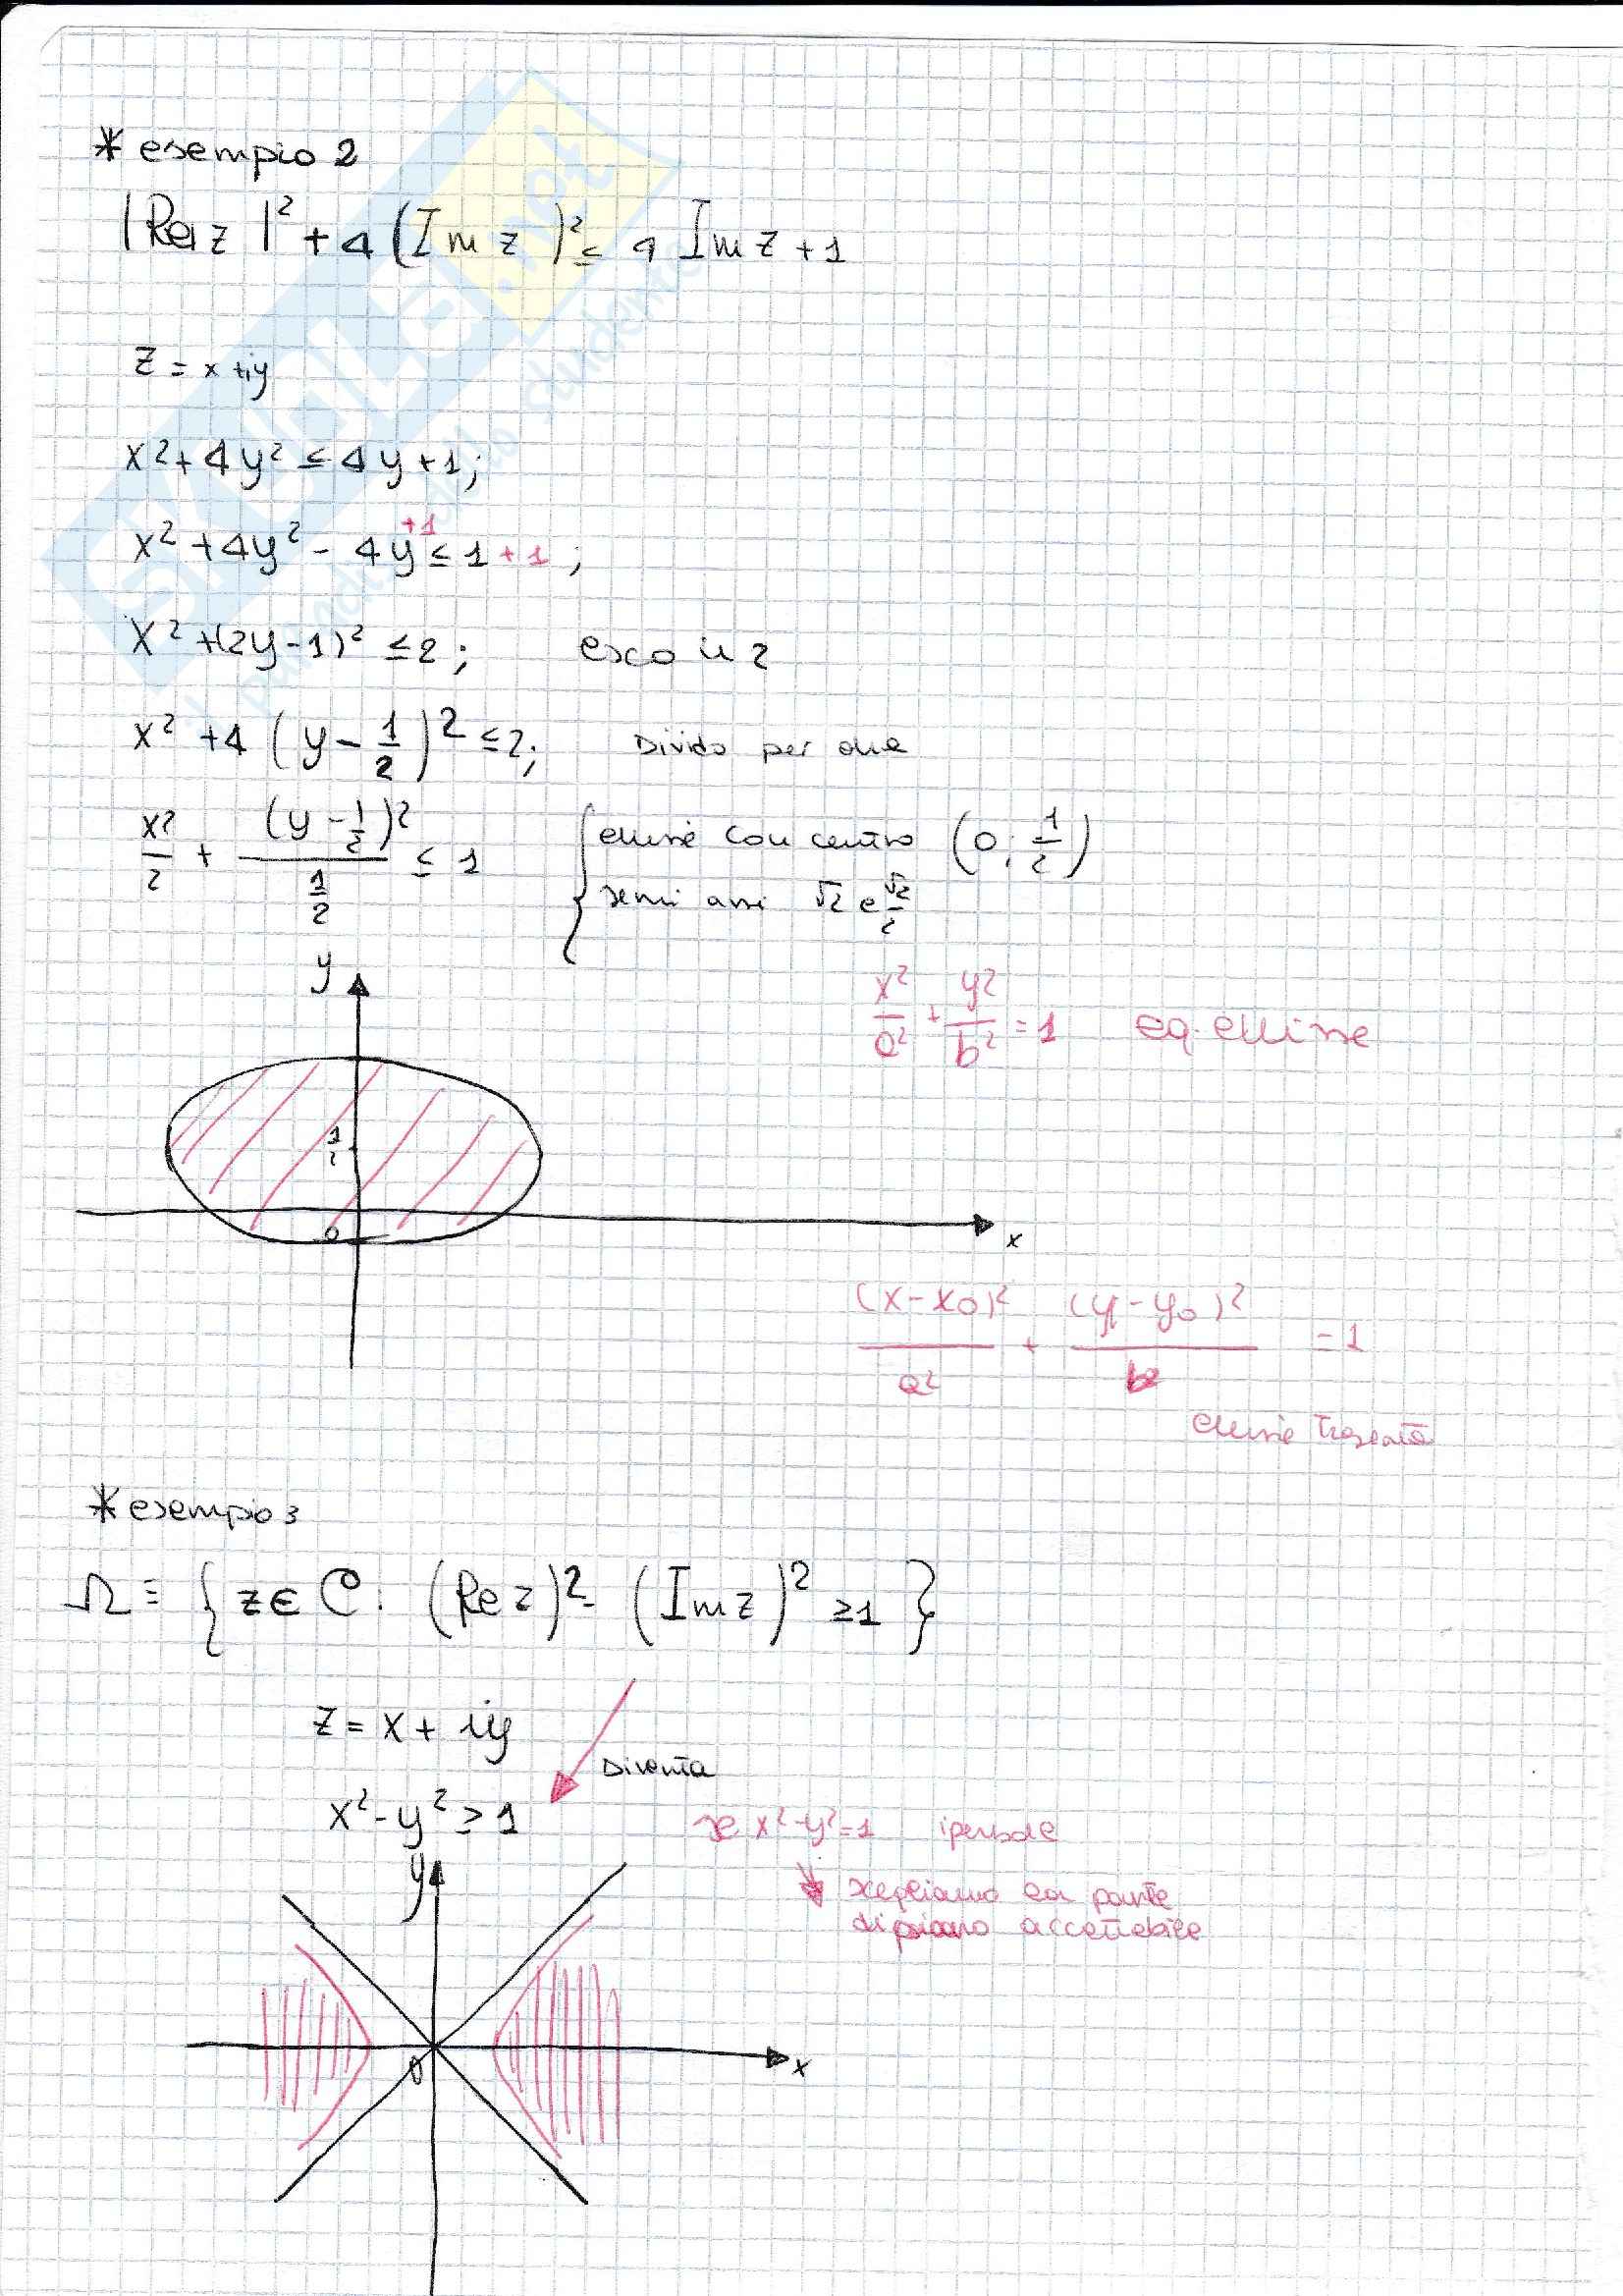 * esempio 2
|Re z|² + 4 (Im z)² ≤ 4 Im z + 1
z = x + iy
x² + 4y² ≤ 4y + 1;
x² + 4y² - 4y +1 ≤ 1 + 1;
x² + (2y - 1)² ≤ 2; esco il 2
x² + 4 (y - 1/2)² ≤ 2; Divido per due
x²/2 + (y - 1/2)²/(1/2) ≤ 1 { ellisse con centro (0; 1/2)
semi assi √2 e √2/2
y
x²/a² + y²/b² = 1 eq. ellisse
1/2
0
x
(x - x₀)²/a² + (y - y₀)²/b² = 1
ellisse traslata
* esempio 3
Ω = { z ∈ C: (Re z)² - (Im z)² ≥ 1 }
z = x + iy
Diventa
x² - y² ≥ 1
se x² - y² = 1 iperbole
y
scegliamo la parte
di piano accettabile
0
x
SKUOLA.net
il paradiso dello studente